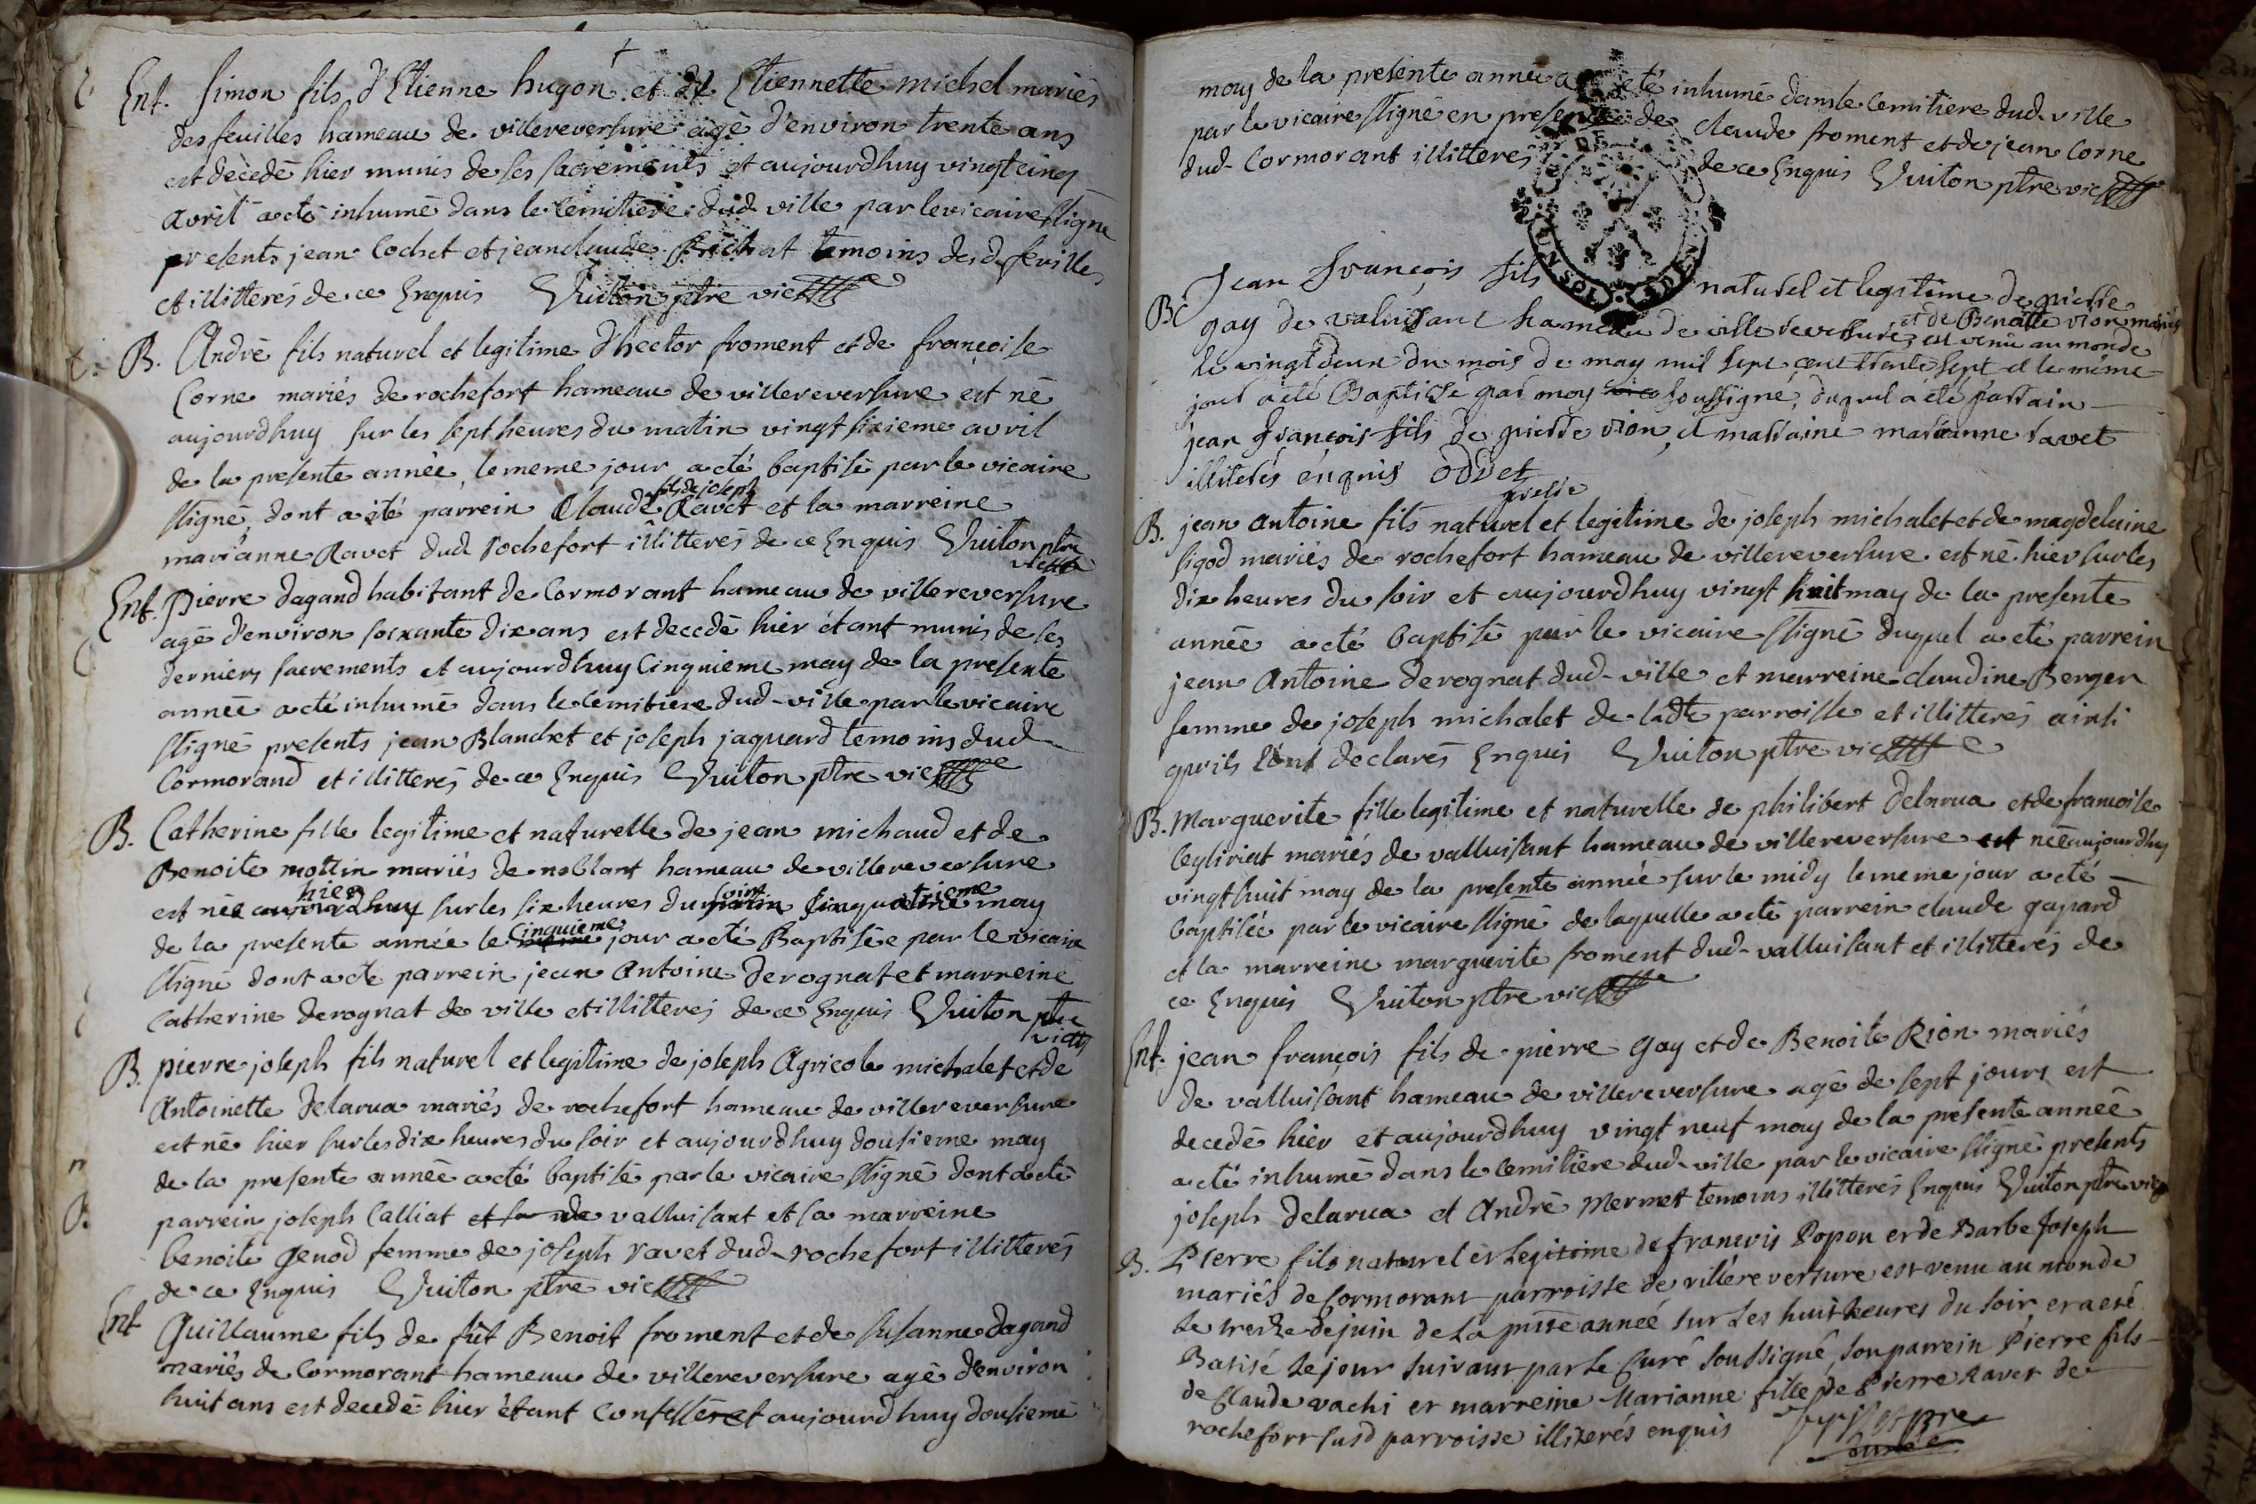 Ent. Simon fils d'Etienne hugon et d'Etiennette michel mariés
des feuilles hameau de villereversure agé d'environ trente ans
est décédé hier munis de ses sacréments et aujourdhuy vingt cinq
avril a eté inhumé dans le cemitiere dud ville par le vicaire ssigné
presents jean Cochet et jean claude temoins desd. feuilles
et illitterés de ce Enquis Vuiton ptre vic
B. André fils naturel et legitime d'hector froment et de françoise
Corne mariés de rochefort hameau de villereversure est né
aujourdhuy sur les sept heures du matin vingt sixieme avril
de la presente année, le meme jour a eté baptisé par le vicaire
fils de joseph
ssigné, dont a été parrein Claude Ravet et la marreine
marianne Ravet dud rochefort illitterés de ce Enquis Vuiton ptre
vic
Ent. Pierre dagand habitant de Cormorant hameau de villereversure
agé d'environ soixante dix ans est decedé hier étant munis de ses
derniers sacrements et aujourdhuy Cinquieme may de la presente
année a eté inhumé dans le cemitiere dud-ville par le vicaire
ssigné presents jean Blanchet et joseph jaquard temoins dud
Cormorand et illitterés de ce Enquis Vuiton ptre vic
B. Catherine fille legitime et naturelle de jean michaud et de
Benoite mottin mariés de noblant hameau de villereversure
hier soir
est née aujourdhuy sur les six heures du matin may
cinquieme
de la presente année le meme jour a eté Baptisée par le vicaire
ssigné dont a eté parrein jean Antoine derognat et marreine
Catherine derognat de ville et illitterés de ce Enquis Vuiton ptre
vic
B. pierre joseph fils naturel et legitime de joseph Agricole michalet et de
Antoinette delarua mariés de rochefort hameau de villereversure
est né hier sur les dix heures du soir et aujourdhuy dousieme may
de la presente année a eté baptisé par le vicaire ssigné dont a eté
parrein joseph Calliat de valluisant et la marreine
benoite genod femme de joseph ravet dud-rochefort illitterés
de ce Enquis Vuiton ptre vic
Ent Guillaume fils de fût Benoit froment et de susanne dagand
mariés de Cormorant hameau de villereversure agé d'environ
huit ans est decedé hier étant Confessé et aujourdhuy dousieme
may de la presente année a eté inhumé dans le Cemitiere dud-ville
par le vicaire ssigné en presence de claude froment et de jean Corne
dud-Cormorant illitterés de ce Enquis Vuiton ptre vic
B Jean françois fils naturel et legitime de pierre
et de Benoitte vion mariés
gay de valuisant hameau de villereversure, est venu au monde
le vingt deux du mois de may mil sept cent trente sept et le même
jour a été Baptisé par moy soussigné, duquel a été parrain
jean françois fils de pierre vion, et marraine marianne ravet
illiterés enquis oddet
prestre
B. jean antoine fils naturel et legitime de joseph michalet et de magdelaine
sigod mariés de rochefort hameau de villereversure est né hier sur les
dix heures du soir et aujourdhuy vingt huit may de la presente
année a eté baptisé par le vicaire ssigné duquel a eté parrein
jean Antoine derognat dud-ville et marreine claudine Berger
femme de joseph michalet de ladte parroisse et illitterés ainsi
quils l'ont declarés Enquis Vuiton ptre vic
B. Marguerite fille legitime et naturelle de philibert delarua et de francoise
Ceyliriat mariés de valluisant hameau de villereversure est née aujourdhuy
vingt huit may de la presente année sur le midy le meme jour a eté
baptisée par le vicaire ssigné de laquelle a eté parrein claude gapard
et la marreine marguerite froment dud-valluisant et illitterés de
ce Enquis Vuiton ptre vic
Ent. jean françois fils de pierre Gay et de Benoite Rion mariés
de valluisant hameau de villereversure agé de sept jours est
decedé hier et aujourdhuy vingt neuf may de la presente année
a eté inhumé dans le cemitiere dud-ville par le vicaire ssigné presents
joseph delarua et André Mermet temoins illitterés Enquis Vuiton ptre vic
B. Pierre fils naturel et Legitime de francois Popon et de Barbe Joseph
mariés de Cormorant parroisse de villereversure est venu au monde
le treize de juin de La pnte année sur Les huit heures du soir, et a eté
Batisé Le jour suivant par Le Curé soussigné, son parrein Pierre fils
de Claude vachi et marreine Marianne fille de Pierre Ravet de
rochefort susd parroisse illiterés enquis